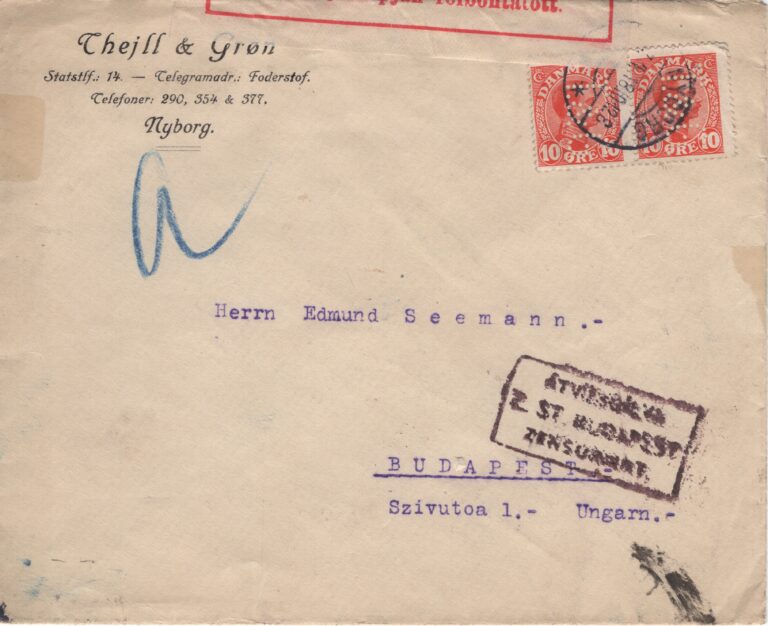 felbontatott.
Thejll & Grøn
Statstlf.: 14. — Telegramadr.: Foderstof.
Telefoner: 290, 354 & 377.
Nyborg.
DANMARK
10 ØRE 10
DANMARK
10 ØRE 10
NYBORG
a
Herrn Edmund Seemann.-
ÁTVIZSGÁLVA
Z. ST BUDAPEST
ZENSURIERT
BUDAPEST.-
Szivutoa 1.- Ungarn.-